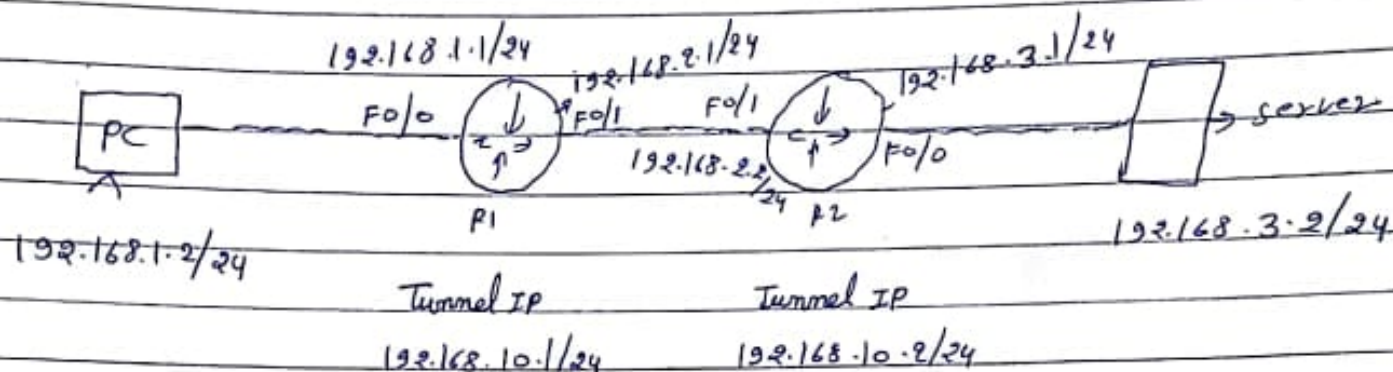 192.168.1.1/24 192.168.2.1/24 192.168.3.1/24
PC F0/0 F0/1 F0/1 F0/0 server
192.168.2.2/24
R1 R2
192.168.1.2/24 192.168.3.2/24
Tunnel IP Tunnel IP
192.168.10.1/24 192.168.10.2/24